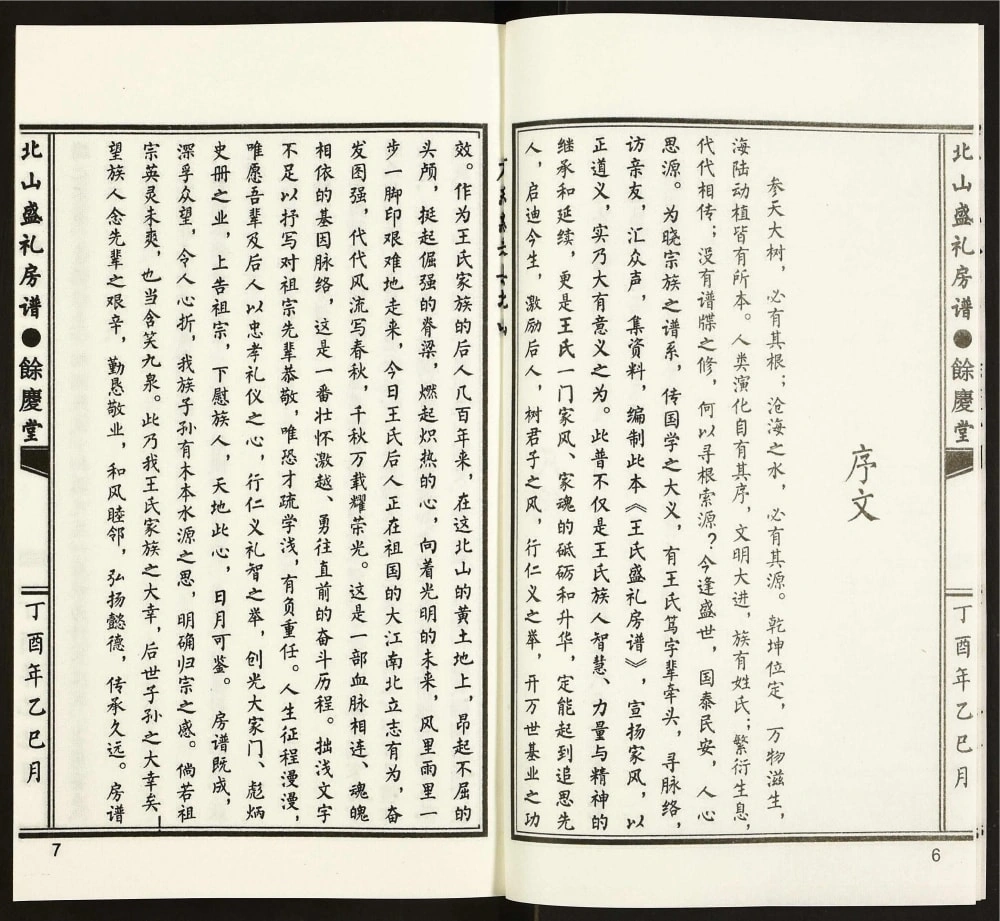 北山盛礼房谱●餘慶堂
丁酉年乙巳月
序文
参天大树，必有其根；沧海之水，必有其源。乾坤位定，万物滋生，
海陆动植皆有所本。人类演化自有其序，文明大进，族有姓氏；繁衍生息，
代代相传；没有谱牒之修，何以寻根索源？今逢盛世，国泰民安，人心
思源。为晓宗族之谱系，传国学之大义，有王氏笃字辈牵头，寻脉络，
访亲友，汇众声，集资料，编制此本《王氏盛礼房谱》，宣扬家风，以
正道义，实乃大有意义之为。此普不仅是王氏族人智慧、力量与精神的
继承和延续，更是王氏一门家风、家魂的砥砺和升华，定能起到追思先
人，启迪今生，激励后人，树君子之风，行仁义之举，开万世基业之功
6
效。作为王氏家族的后人几百年来，在这北山的黄土地上，昂起不屈的
头颅，挺起倔强的脊梁，燃起炽热的心，向着光明的未来，风里雨里一
步一脚印艰难地走来，今日王氏后人正在祖国的大江南北立志有为，奋
发图强，代代风流写春秋，千秋万载耀荣光。这是一部血脉相连、魂魄
相依的基因脉络，这是一番壮怀激越、勇往直前的奋斗历程。拙浅文字
不足以抒写对祖宗先辈恭敬，唯恐才疏学浅，有负重任。人生征程漫漫，
唯愿吾辈及后人以忠孝礼仪之心，行仁义礼智之举，创光大家门、彪炳
史册之业，上告祖宗，下慰族人，天地此心，日月可鉴。房谱既成，
深孚众望，令人心折，我族子孙有木本水源之思，明确归宗之感。倘若祖
宗英灵未爽，也当含笑九泉。此乃我王氏家族之大幸，后世子孙之大幸矣，
望族人念先辈之艰辛，勤恳敬业，和风睦邻，弘扬懿德，传承久远。房谱
北山盛礼房谱●餘慶堂
丁酉年乙巳月
7